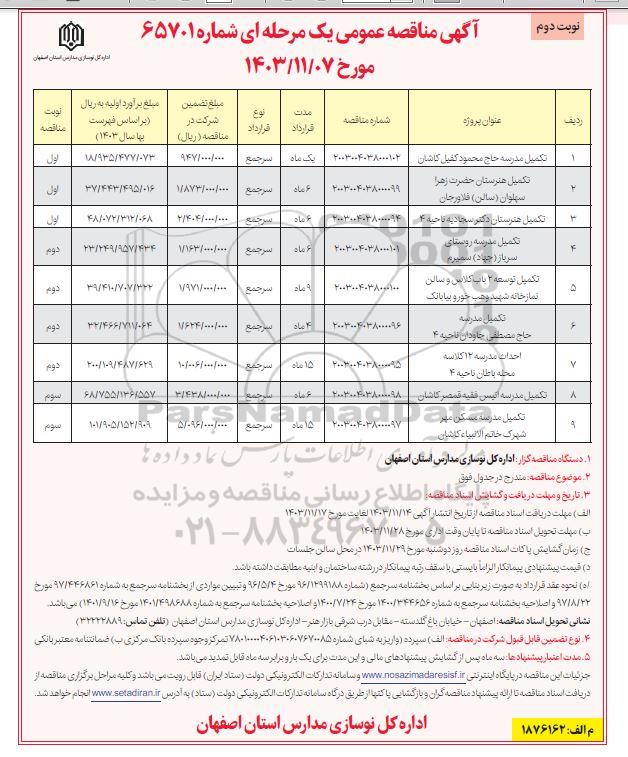 نوبت دوم
آگهی مناقصه عمومی یک مرحله ای شماره ۶۵۷۰۱
مورخ ۱۴۰۳/۱۱/۰۷
اداره کل نوسازی مدارس استان اصفهان
ردیف عنوان پروژه شماره مناقصه مدت قرارداد نوع قرارداد مبلغ تضمین شرکت در مناقصه (ریال) مبلغ برآورد اولیه به ریال (بر اساس فهرست بها سال ۱۴۰۳) نوبت مناقصه
۱ تکمیل مدرسه حاج محمود کفیل کاشان ۲۰۰۳۰۰۴۰۳۸۰۰۰۱۰۲ یک ماه سرجمع ۹۴۷/۰۰۰/۰۰۰ ۱۸/۹۳۵/۴۷۷/۰۷۳ اول
۲ تکمیل هنرستان حضرت زهرا سهلوان (سالن) فلاورجان ۲۰۰۳۰۰۴۰۳۸۰۰۰۰۹۹ ۶ ماه سرجمع ۱/۸۷۳/۰۰۰/۰۰۰ ۳۷/۴۴۳/۴۹۵/۰۱۶ اول
۳ تکمیل هنرستان دکتر سجادیه ناحیه ۴ ۲۰۰۳۰۰۴۰۳۸۰۰۰۰۹۴ ۶ ماه سرجمع ۲/۴۰۴/۰۰۰/۰۰۰ ۴۸/۰۷۲/۳۱۲/۰۶۸ اول
۴ تکمیل مدرسه روستای سرباز (جهاد) سمیرم ۲۰۰۳۰۰۴۰۳۸۰۰۰۱۰۱ ۶ ماه سرجمع ۱/۱۶۳/۰۰۰/۰۰۰ ۲۳/۲۴۹/۹۵۷/۴۳۴ دوم
۵ تکمیل توسعه ۲ باب کلاس و سالن نمازخانه شهید وهب خور و بیابانک ۲۰۰۳۰۰۴۰۳۸۰۰۰۱۰۰ ۹ ماه سرجمع ۱/۹۷۱/۰۰۰/۰۰۰ ۳۹/۴۱۰/۷۰۷/۳۲۲ دوم
۶ تکمیل مدرسه حاج مصطفی جاودان ناحیه ۴ ۲۰۰۳۰۰۴۰۳۸۰۰۰۰۹۶ ۴ ماه سرجمع ۱/۶۲۴/۰۰۰/۰۰۰ ۳۲/۴۶۶/۷۱۱/۰۶۴ دوم
۷ احداث مدرسه ۱۲ کلاسه محله باطان ناحیه ۴ ۲۰۰۳۰۰۴۰۳۸۰۰۰۰۹۵ ۱۵ ماه سرجمع ۱۰/۰۰۶/۰۰۰/۰۰۰ ۲۰۰/۱۰۹/۴۸۷/۶۲۹ دوم
۸ تکمیل مدرسه انیس فقیه قمصر کاشان ۲۰۰۳۰۰۴۰۳۸۰۰۰۰۹۸ ۶ ماه سرجمع ۳/۴۳۸/۰۰۰/۰۰۰ ۶۸/۷۵۵/۱۳۶/۵۵۷ سوم
۹ تکمیل مدرسه مسکن مهر شهرک خاتم الانبیاء کاشان ۲۰۰۳۰۰۴۰۳۸۰۰۰۰۹۷ ۱۵ ماه سرجمع ۵/۰۹۶/۰۰۰/۰۰۰ ۱۰۱/۹۰۵/۱۵۲/۹۰۹ سوم
ParsNamadData
پایگاه اطلاع رسانی مناقصه و مزایده
۱. دستگاه مناقصه گزار: اداره کل نوسازی مدارس استان اصفهان
۲. موضوع مناقصه: مندرج در جدول فوق
۳. تاریخ و مهلت دریافت و گشایش اسناد مناقصه:
الف) مهلت دریافت اسناد مناقصه از تاریخ انتشار آگهی ۱۴۰۳/۱۱/۱۴ لغایت مورخ ۱۴۰۳/۱۱/۱۷
ب) مهلت تحویل اسناد مناقصه تا پایان وقت اداری مورخ ۱۴۰۳/۱۱/۲۸
ج) زمان گشایش پاکات اسناد مناقصه روز دوشنبه مورخ ۱۴۰۳/۱۱/۲۹ در محل سالن جلسات
د) قیمت پیشنهادی پیمانکار الزاماً بایستی با سقف رتبه پیمانکار در رشته ساختمان و ابنیه مطابقت داشته باشد.
ه) نحوه عقد قرارداد به صورت زیربنایی بر اساس بخشنامه سرجمع (شماره ۹۶/۱۲۹۹۱۸۸ مورخ ۹۶/۵/۴ و تبیین مواردی از بخشنامه سرجمع به شماره ۹۷/۴۴۶۸۶۱ مورخ
۹۷/۸/۲۲ و اصلاحیه بخشنامه سرجمع به شماره ۱۴۰۰/۳۴۴۶۵۶ مورخ ۱۴۰۰/۷/۲۴ و اصلاحیه بخشنامه سرجمع به شماره ۱۴۰۱/۴۹۸۶۸۸ مورخ ۱۴۰۱/۹/۱۶) می باشد.
نشانی تحویل اسناد مناقصه: اصفهان – خیابان باغ گلدسته – مقابل درب شرقی بازار هنر – اداره کل نوسازی مدارس استان اصفهان (تلفن تماس: ۳۲۲۲۲۸۸۹)
۴. نوع تضمین قابل قبول شرکت در مناقصه: الف) سپرده (واریز به شبای شماره ۷۸۰۱۰۰۰۰۴۰۶۱۰۳۰۶۰۷۶۷۰۰۸۵ تمرکز وجوه سپرده بانک مرکزی ب) ضمانتنامه معتبر بانکی
۵. مدت اعتبار پیشنهادها: سه ماه پس از گشایش پیشنهادهای مالی و این مدت برای یک بار و برابر سه ماه قابل تمدید می باشد.
جزئیات این مناقصه در پایگاه اینترنتی www.nosazimadaresisf.ir و سامانه تدارکات الکترونیکی دولت (ستاد ایران) قابل رویت می باشد و کلیه مراحل برگزاری مناقصه از
دریافت اسناد مناقصه تا ارائه پیشنهاد مناقصه گران و بازگشایی پاکتها از طریق درگاه سامانه تدارکات الکترونیکی دولت (ستاد) به آدرس www.setadiran.ir انجام خواهد شد.
اداره کل نوسازی مدارس استان اصفهان
م الف: ۱۸۷۶۱۶۲